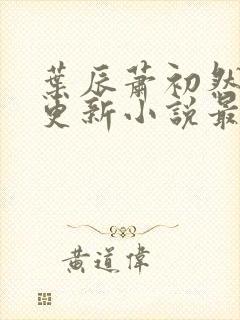 葉辰蕭初然
更新小說最
黄道偉